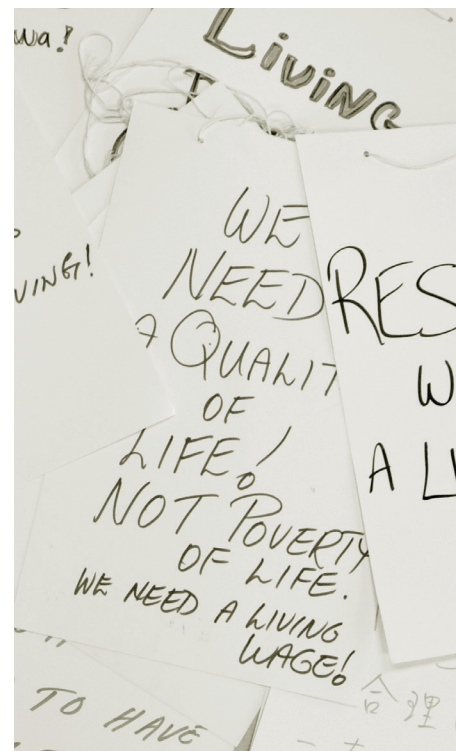 wa!
Living
VING!
WE
NEED
A QUALIT
OF
LIFE!
NOT POVERTY
OF LIFE.
WE NEED A LIVING
WAGE!
RES
W
A LI
TO HAVE
合理